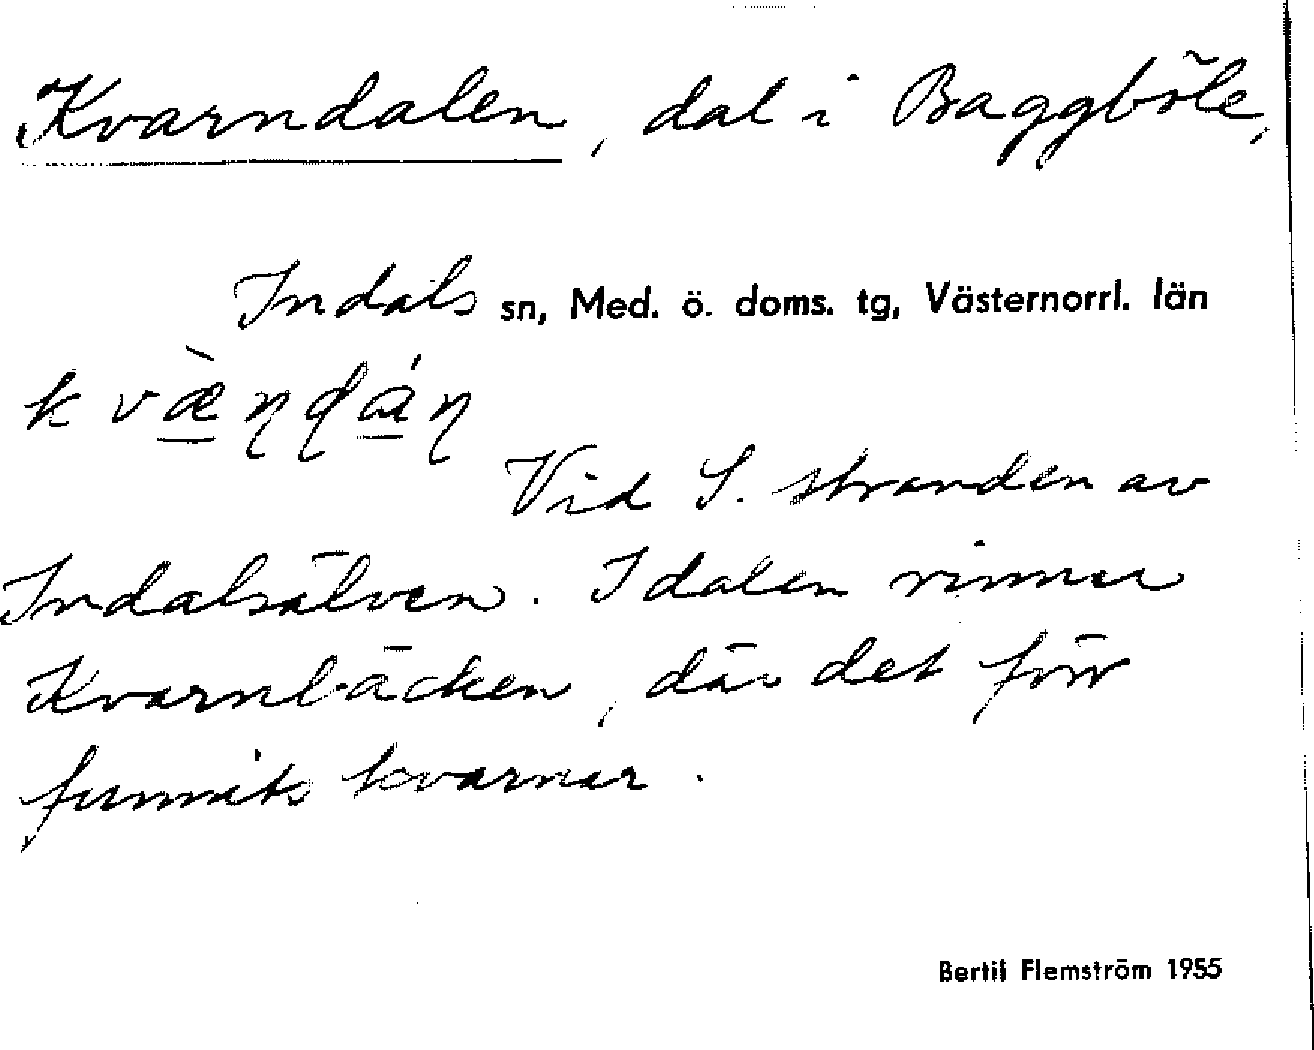 Kvarndalen, dal i Baggböle,
Indals sn, Med. ö. doms. tg, Västernorrl. län
kvæ̀ɳɖáɳ
Vid S. stranden av
Indalsälven. I dalen rinner
Kvarnbäcken, där det förr
funnits kvarnar.
Bertil Flemström 1955